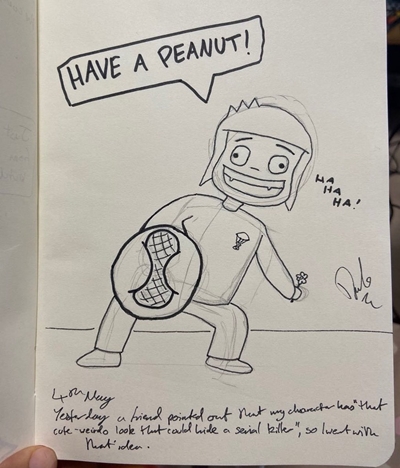 HAVE A PEANUT!
HA
HA
HA!
4th May
Yesterday a friend pointed out that my character has "that
cute-weirdo look that could hide a serial killer", so I went with
that idea.